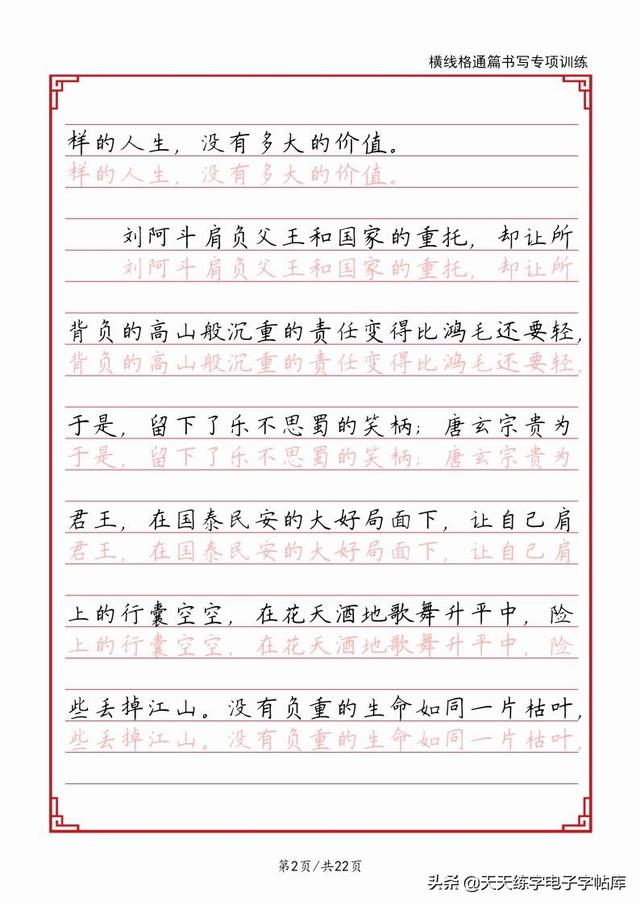 横线格通篇书写专项训练
样的人生，没有多大的价值。
样的人生，没有多大的价值。
刘阿斗肩负父王和国家的重托，却让所
刘阿斗肩负父王和国家的重托，却让所
背负的高山般沉重的责任变得比鸿毛还要轻，
背负的高山般沉重的责任变得比鸿毛还要轻，
于是，留下了乐不思蜀的笑柄；唐玄宗贵为
于是，留下了乐不思蜀的笑柄；唐玄宗贵为
君王，在国泰民安的大好局面下，让自己肩
君王，在国泰民安的大好局面下，让自己肩
上的行囊空空，在花天酒地歌舞升平中，险
上的行囊空空，在花天酒地歌舞升平中，险
些丢掉江山。没有负重的生命如同一片枯叶，
些丢掉江山。没有负重的生命如同一片枯叶，
第2页/共22页
头条 @天天练字电子字帖库